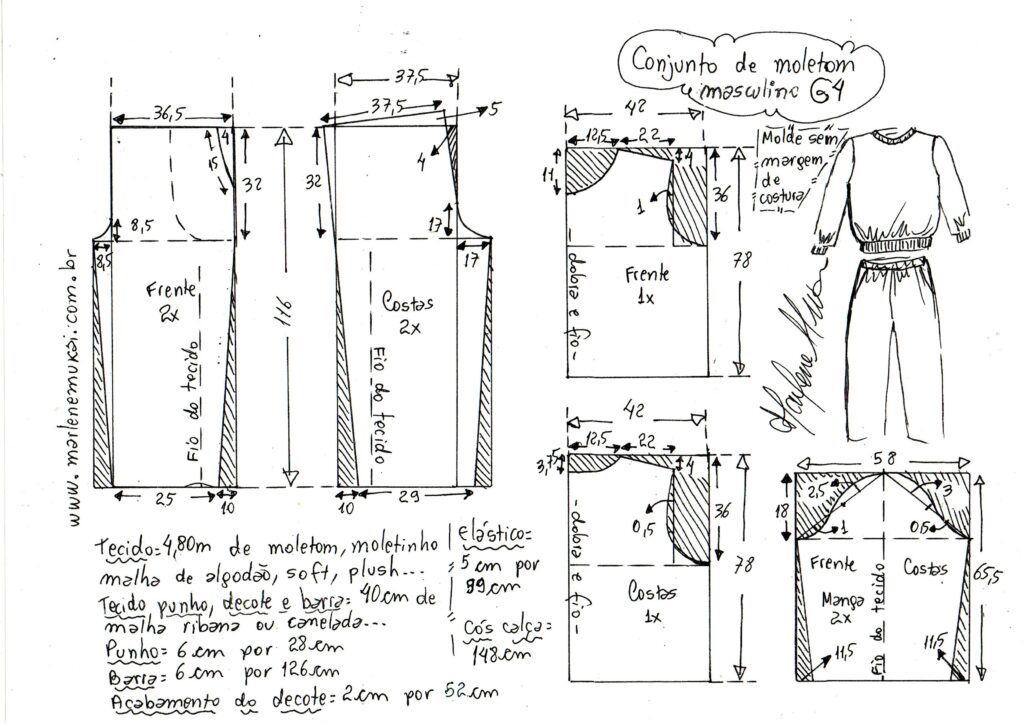 Conjunto de moletom
masculino G4
Molde sem
margem
de
costura
www.marlenemukai.com.br
37,5
36,5
37,5
5
4
15
32
116
32
4
8,5
17
8,5
17
Frente
2x
Fio do tecido
Costas
2x
Fio do tecido
25
10
10
29
42
12,5
22
11
4
1
36
78
Frente
1x
-dobra e fio-
42
12,5
22
3,75
4
0,5
36
78
Costas
1x
-dobra e fio-
58
2,5
3
18
1
0,5
65,5
Frente
Costas
Manga
2x
Fio do tecido
11,5
11,5
Tecido=4,80m de moletom, moletinho
malha de algodão, soft, plush...
Tecido punho, decote e barra= 40cm de
malha ribana ou canelada...
Punho= 6cm por 28cm
Barra= 6cm por 126cm
Acabamento do decote=2cm por 52cm
Elástico=
5cm por
99cm
Cós calça=
148cm